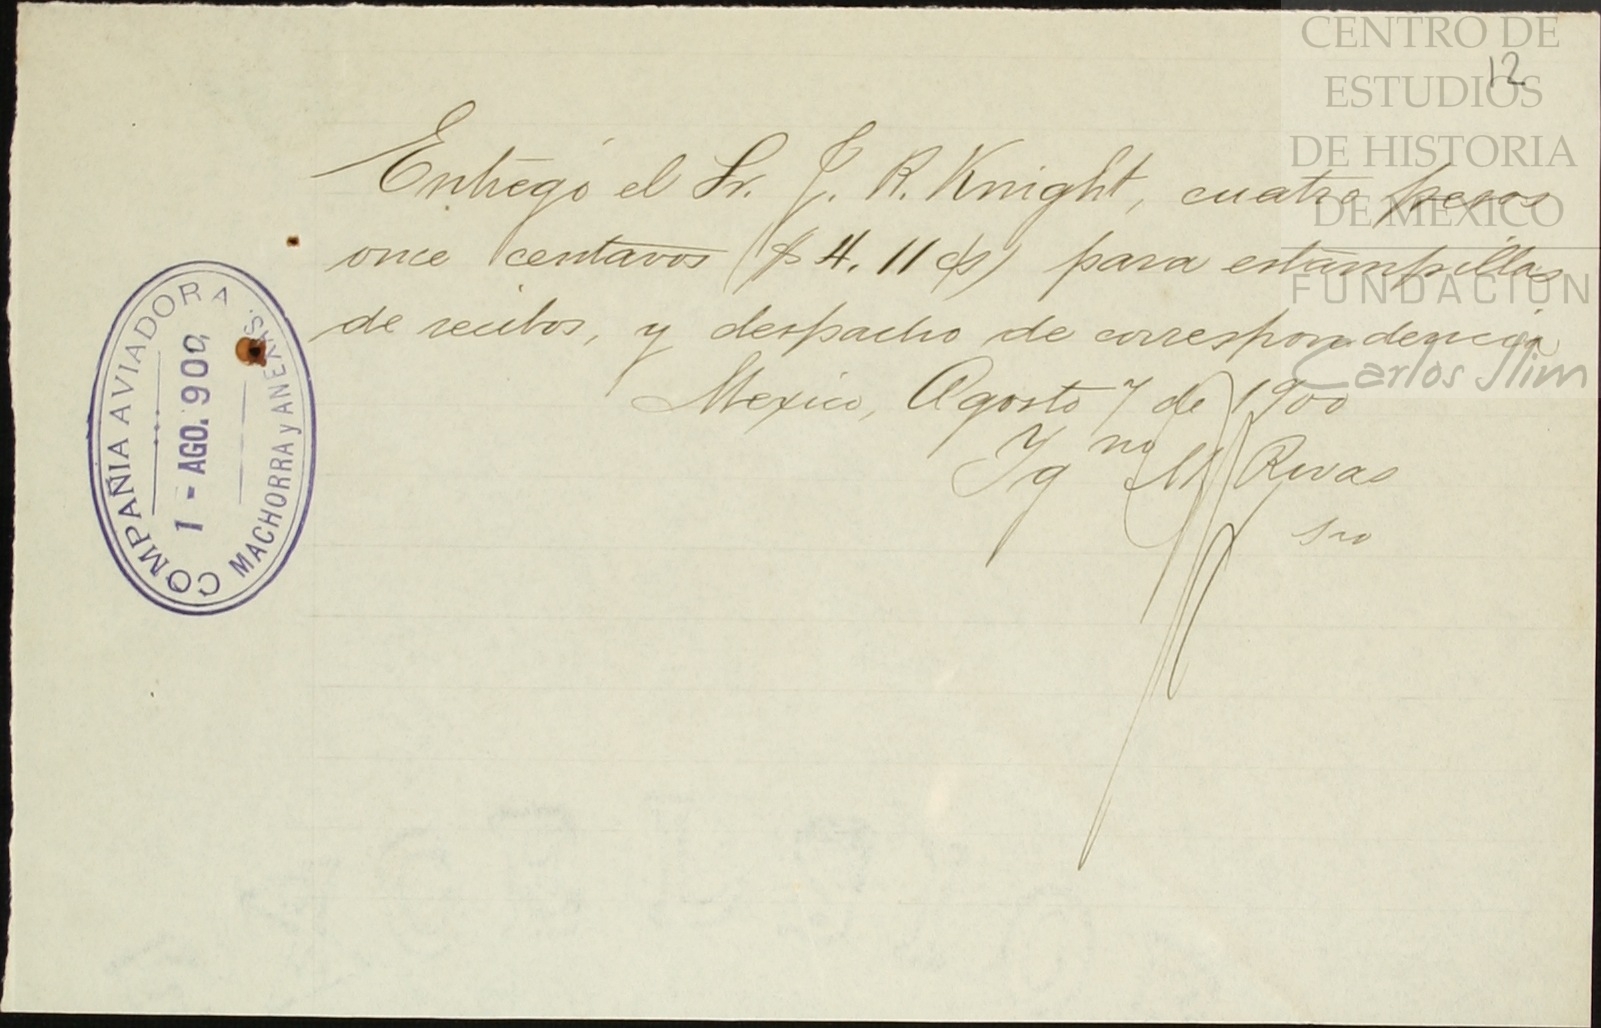 12
Entregó el Sr. J. R. Knight, cuatro pesos
once centavos ($4.11 c/s) para estampillas
de recibos, y despacho de correspondencia
Mexico, Agosto 7 de 1900
Ygno M Rivas
Srio
COMPAÑIA AVIADORA
1 - AGO. 900
MACHORRA y ANEXAS.
CENTRO DE
ESTUDIOS
DE HISTORIA
DE MÉXICO
FUNDACIÓN
Carlos Slim